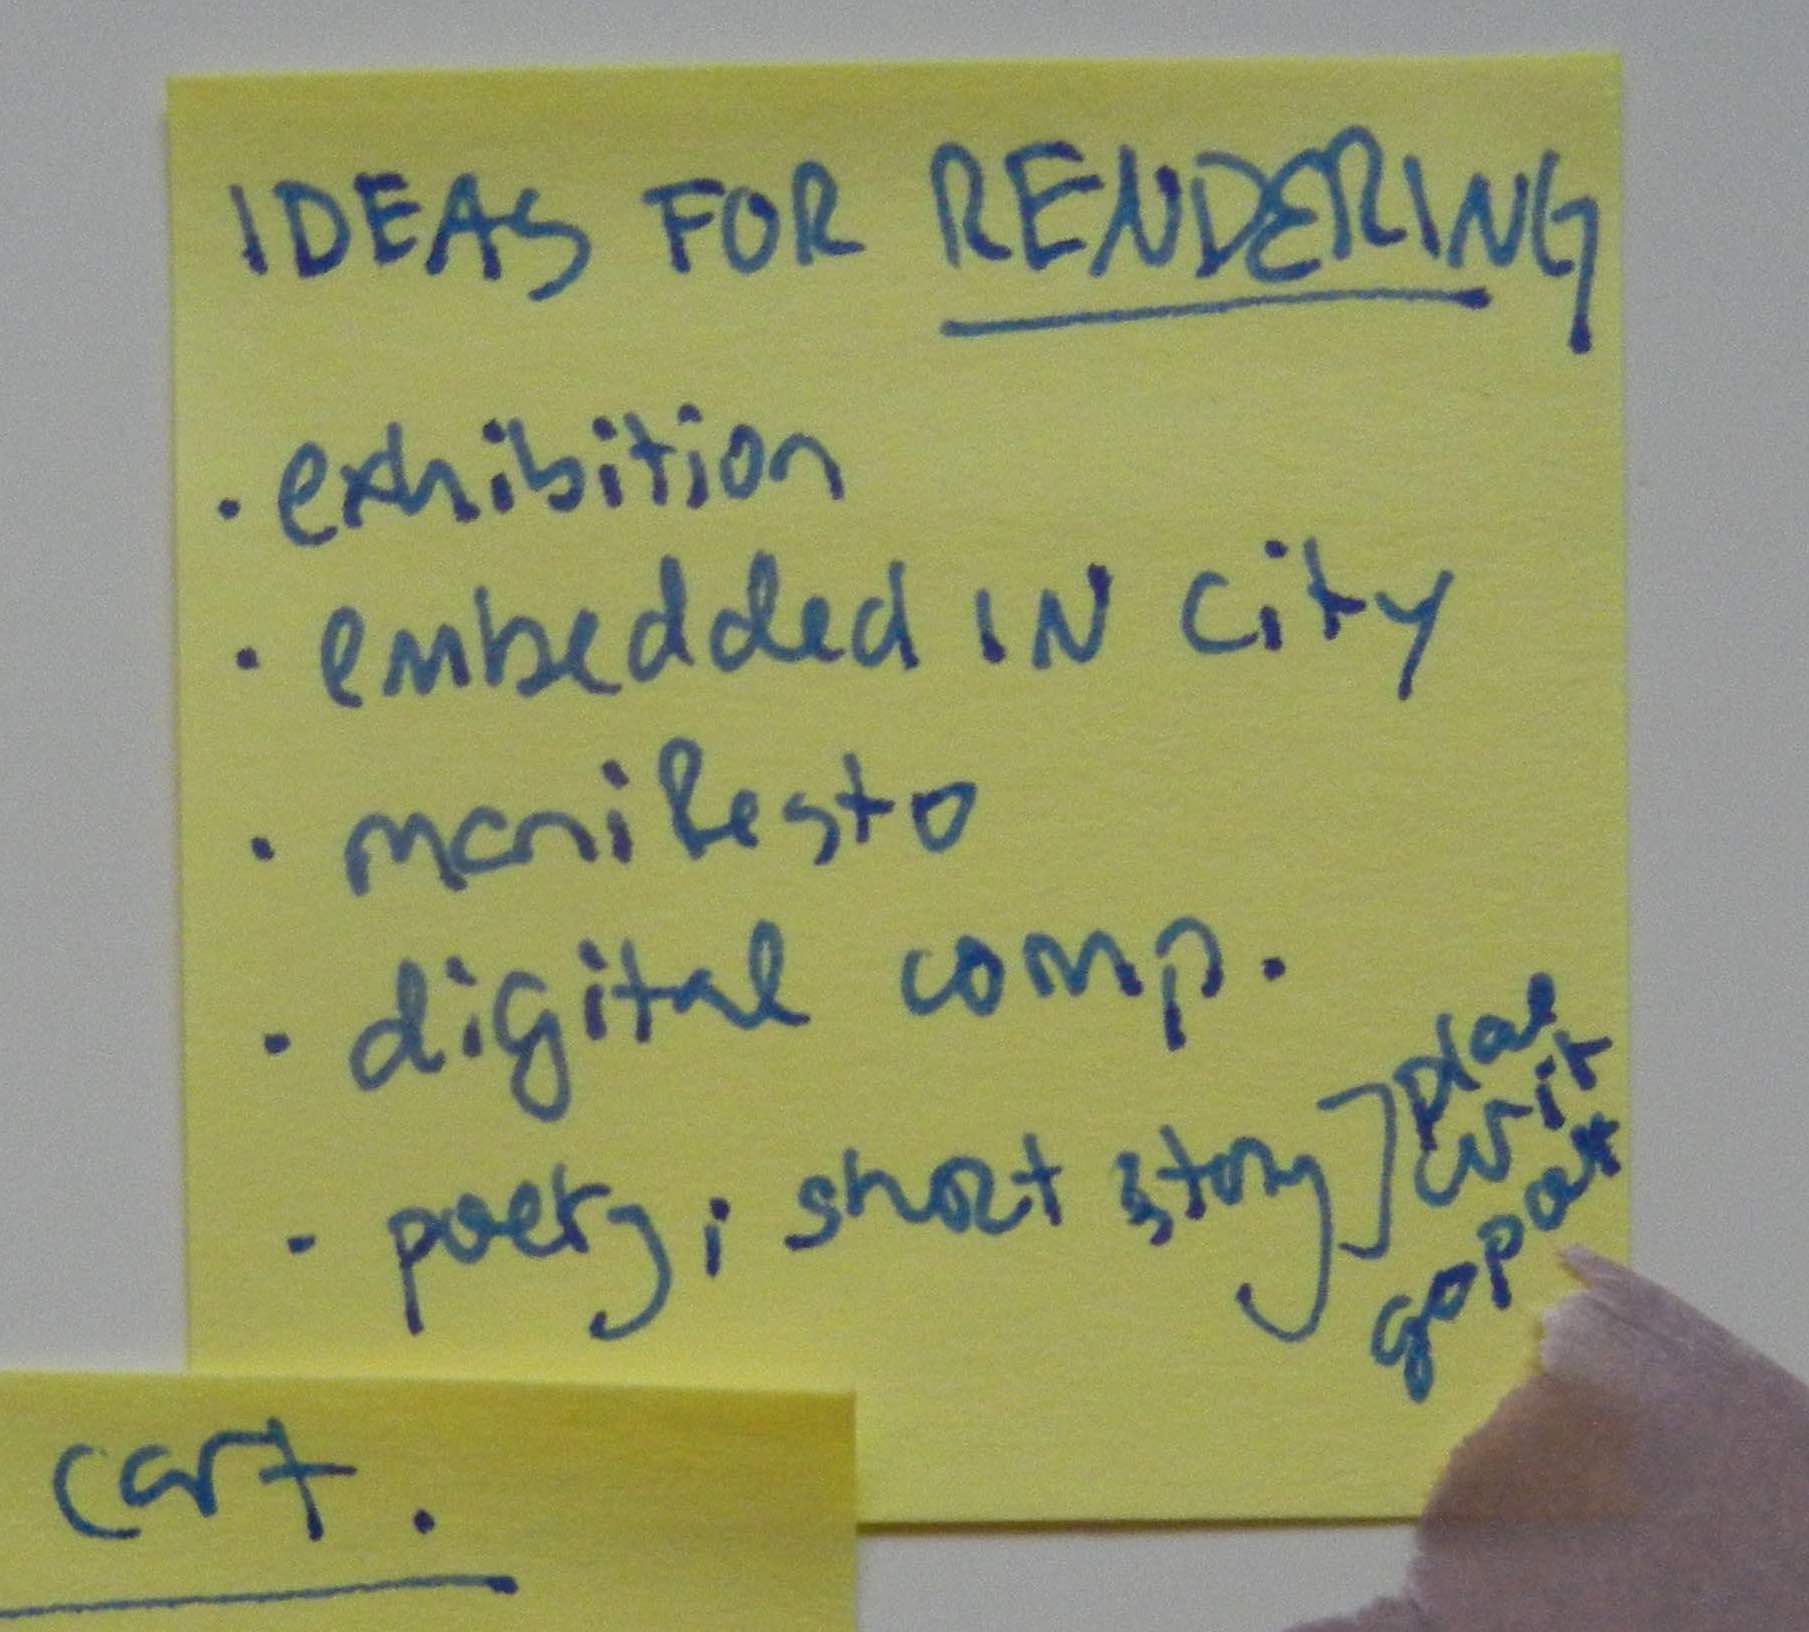 IDEAS FOR RENDERING
· exhibition
· embedded IN city
· manifesto
· digital comp.
· poetry; short story]
crit
cart.